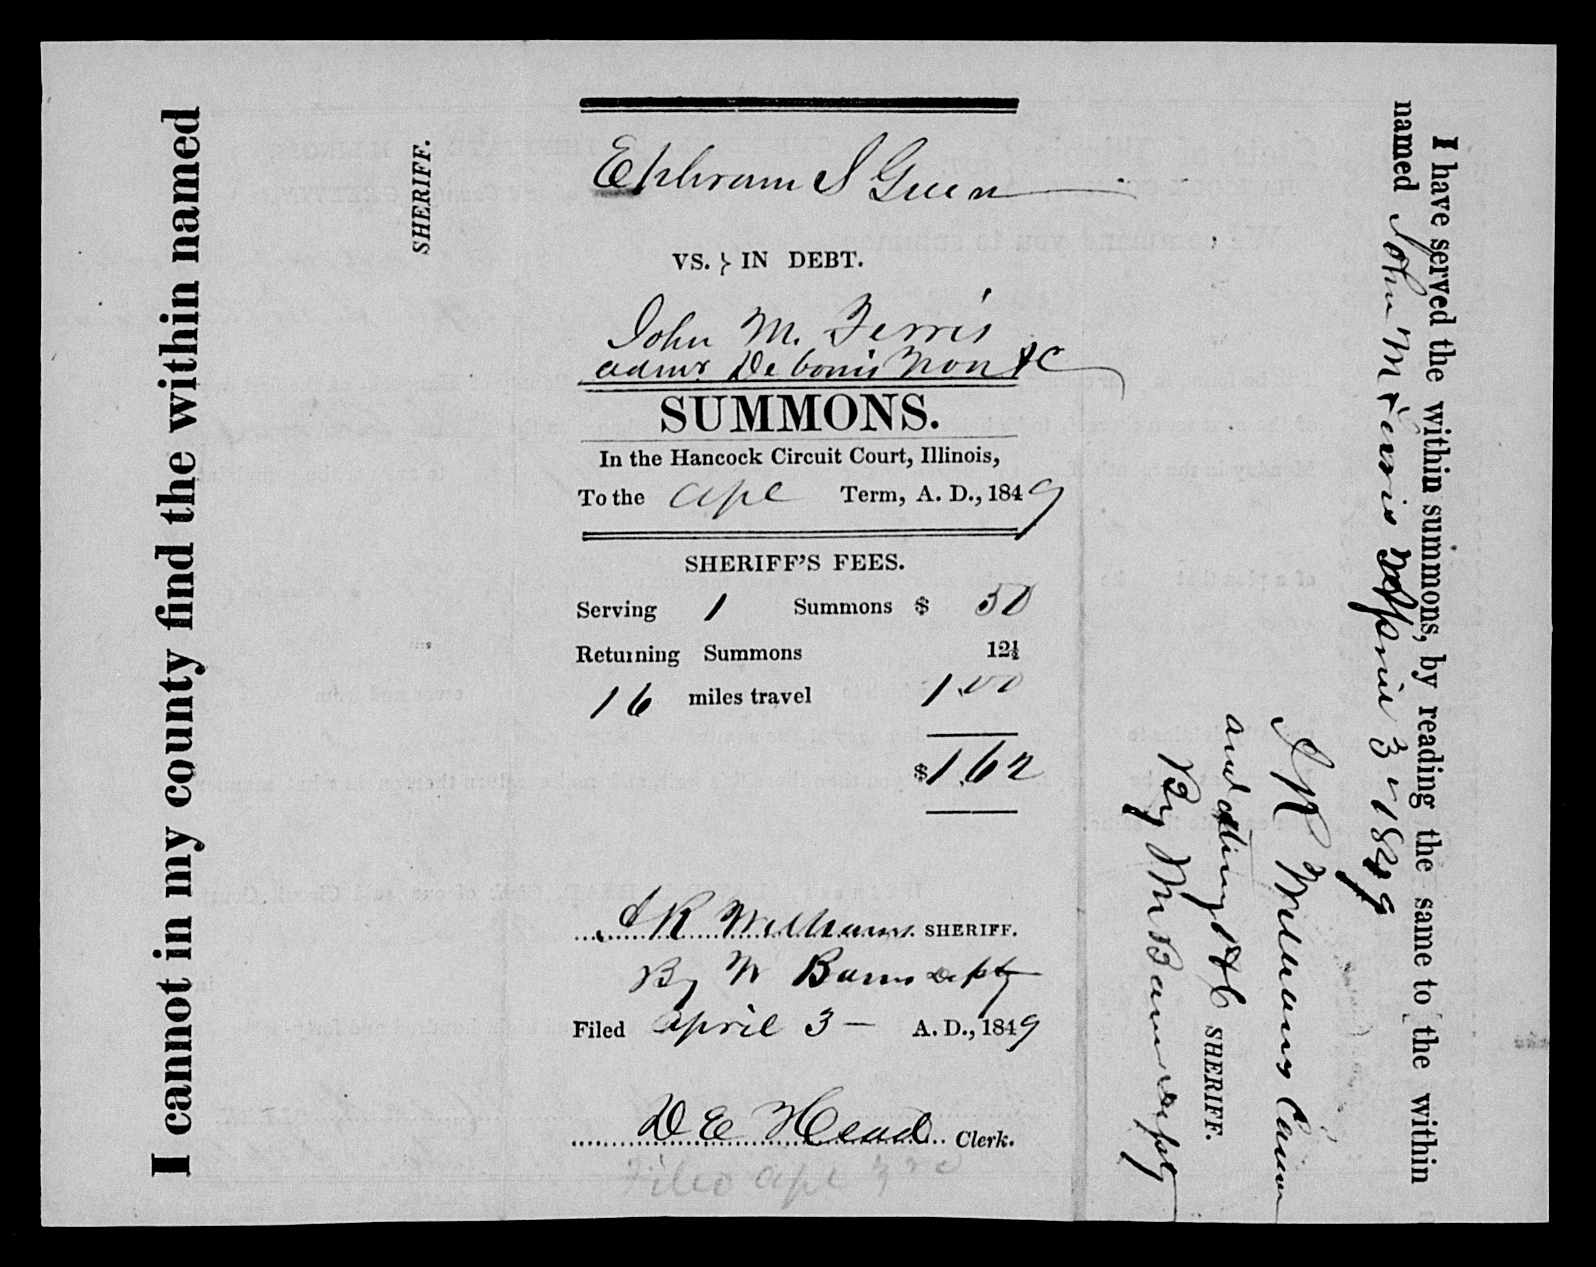 I cannot in my county find the within named
SHERIFF.
Ephram S Green
VS. } IN DEBT.
John M. Ferris
admr De bonis Non &C
SUMMONS.
In the Hancock Circuit Court, Illinois,
To the Apl Term, A. D., 1849
SHERIFF'S FEES.
Serving 1 Summons $ 50
Returning Summons 12½
16 miles travel 1.00
$1.62
I R Williams. SHERIFF.
By M Barns depty
Filed April 3 — A. D., 1849
D E Head Clerk.
Filed Apl 3rd
I have served the within summons, by reading the same to the within
named John M Ferris April 3 - 1849
I R Williams
and acting H C SHERIFF.
By M Barns depty